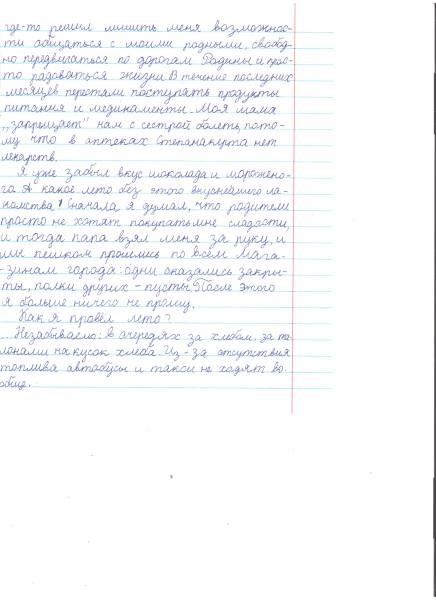 где-то решил лишить меня возможнос-
ти общаться с моими родными, свобод-
но передвигаться по дорогам Родины и прос-
то радоваться жизни. В течение последних
месяцев перестали поступать продукты
питания и медикаменты. Моя мама
„запрещает" нам с сестрой болеть, пото-
му что в аптеках Степанакерта нет
лекарств.
Я уже забыл вкус шоколада и морожено-
го. А какое лето без этого вкуснейшего ла-
комства! Сначала я думал, что родители
просто не хотят покупать мне сладости,
и тогда папа взял меня за руку, и
мы пешком прошлись по всем мага-
зинам города: одни оказались закры-
ты, полки других - пусты. После этого
я больше ничего не прошу.
Как я провёл лето?
...Незабываемо: в очередях за хлебом, за та-
лонами на кусок хлеба. Из-за отсутствия
топлива автобусы и такси не ходят во-
обще.